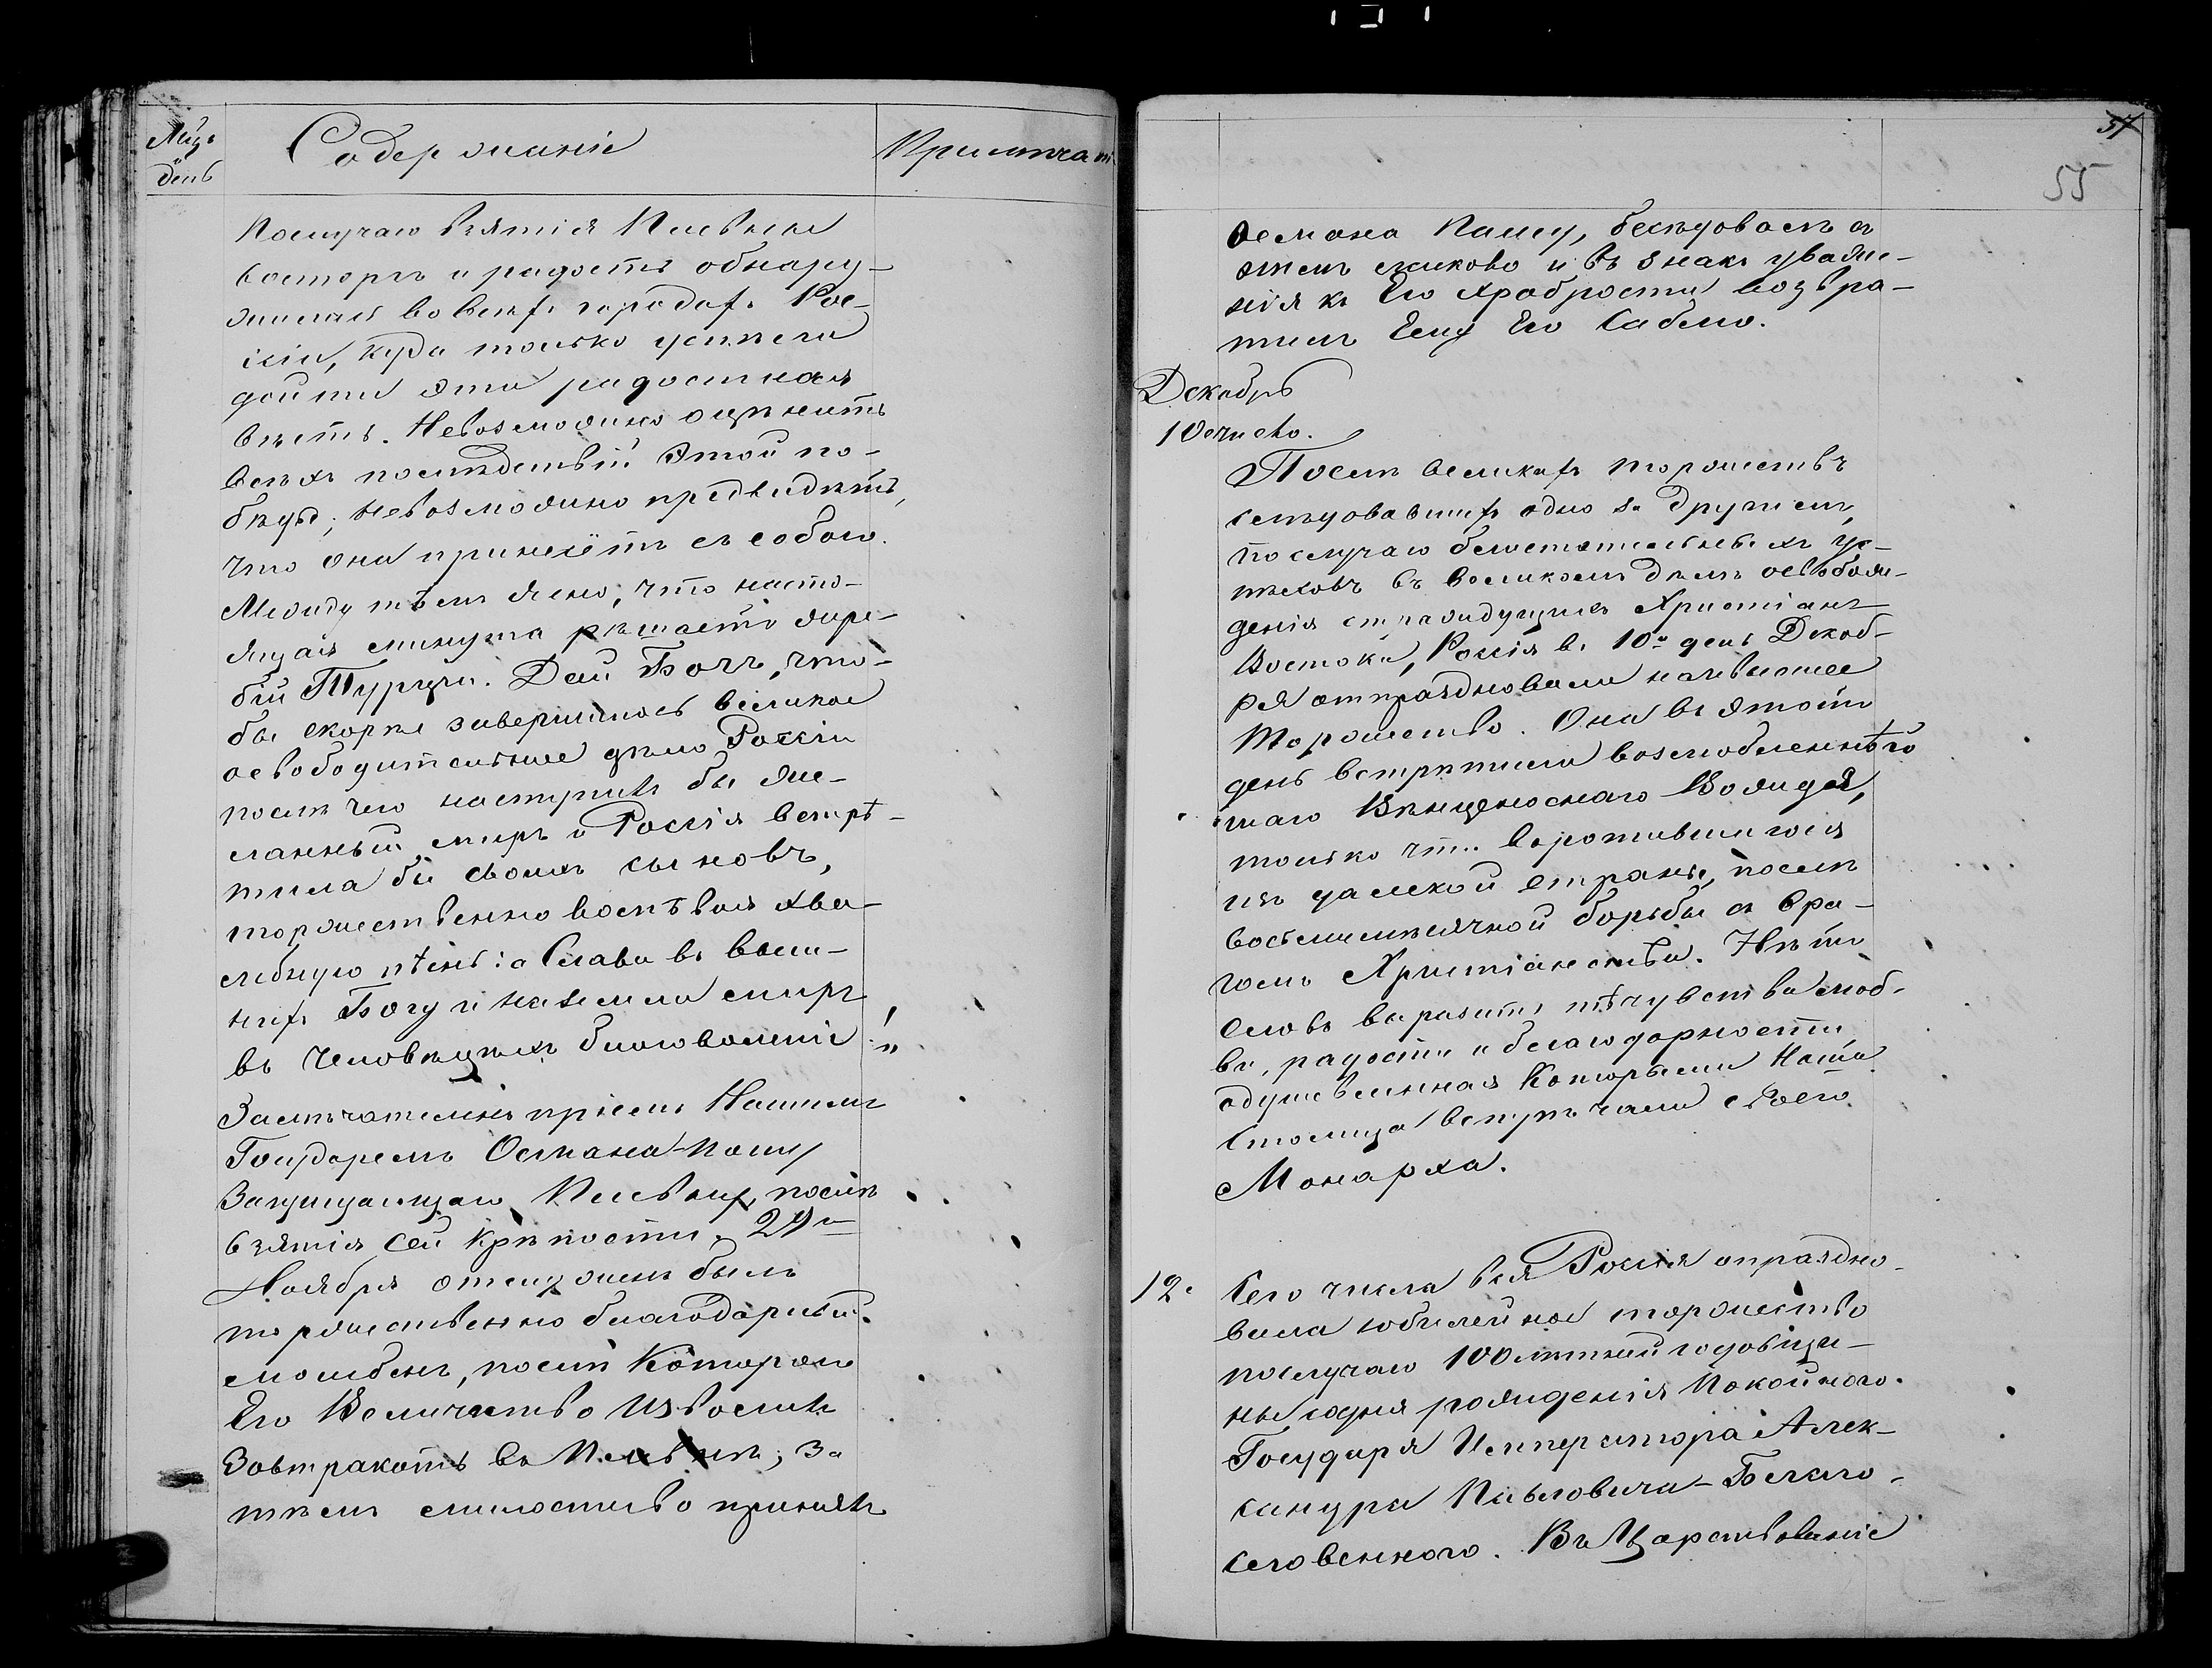 Мѣц.
и
день
Содержаніе
Примѣчан
послучаю взятія Плевны
восторгъ и радость обнару-
жились во всѣхъ городахъ Рос-
сіи, куда только успѣли
дойти эта радостная
вѣсть. Невозможно оцѣнить
всѣхъ послѣдствій этой по-
бѣды; невозможно предвидѣть,
что она принесётъ съ собою.
Между тѣмъ ясно, что насто-
ящая минута рѣшаетъ жре-
бій Турціи. Дай Богъ, что-
бы скорѣе завершилось великое
освободительное дѣло Россіи
послѣ чего наступилъ бы же-
ланный миръ и Россія встрѣ-
тила бы своихъ сыновъ,
торжественно воспѣвая хва-
лебную пѣснь: „Слава въ выш-
нихъ Богу и на земли миръ
въ человѣцѣхъ благоволеніе!"
Замѣчателенъ пріемъ Нашимъ
Государемъ Османа-пашу
Защищающаго Плевну, послѣ
взятія сей крѣпости. 29го
Ноября отслуженъ былъ
торжественно благодарный
молебенъ, послѣ котораго
Его Величество Изволилъ
Завтракать въ Плевнѣ; за
тѣмъ милостиво принялъ
57
55
Османа Пашу, бесѣдовалъ съ
нимъ ласково и въ знакъ уваже-
нія къ Его храбрости возвра-
тилъ Ему Его Саблю.
Декабрь
10е число.
Послѣ великихъ торжествъ
слѣдовавшихъ одно за другимъ,
послучаю блистательныхъ ус-
пѣховъ въ великомъ дѣлѣ освобож-
денія страждущихъ Христіанъ
Востока, Россія въ 10й день Декаб-
ря отпраздновали наивысшее
Торжество. Она въ этотъ
день встрѣтили возлюбленнѣй
шаго Вѣнценоснаго Вождя,
только что воротившагося
изъ далекой страны, послѣ
восьмимѣсячной борьбы съ вра-
гомъ Христіанства. Нѣтъ
словъ выразить тѣ чувства люб-
ви, радости и благодарности
одушевленная Которыми Наша
Столица встрѣчала своего
Монарха.
12. Сего числа вся Россія отпраздно-
вала юбилейное торжество
послучаю 100лѣтней годовщи-
ны со дня рожденія Покойнаго
Государя Императора Алек-
сандра Павловича - Благо-
словеннаго. Въ Царствованіе